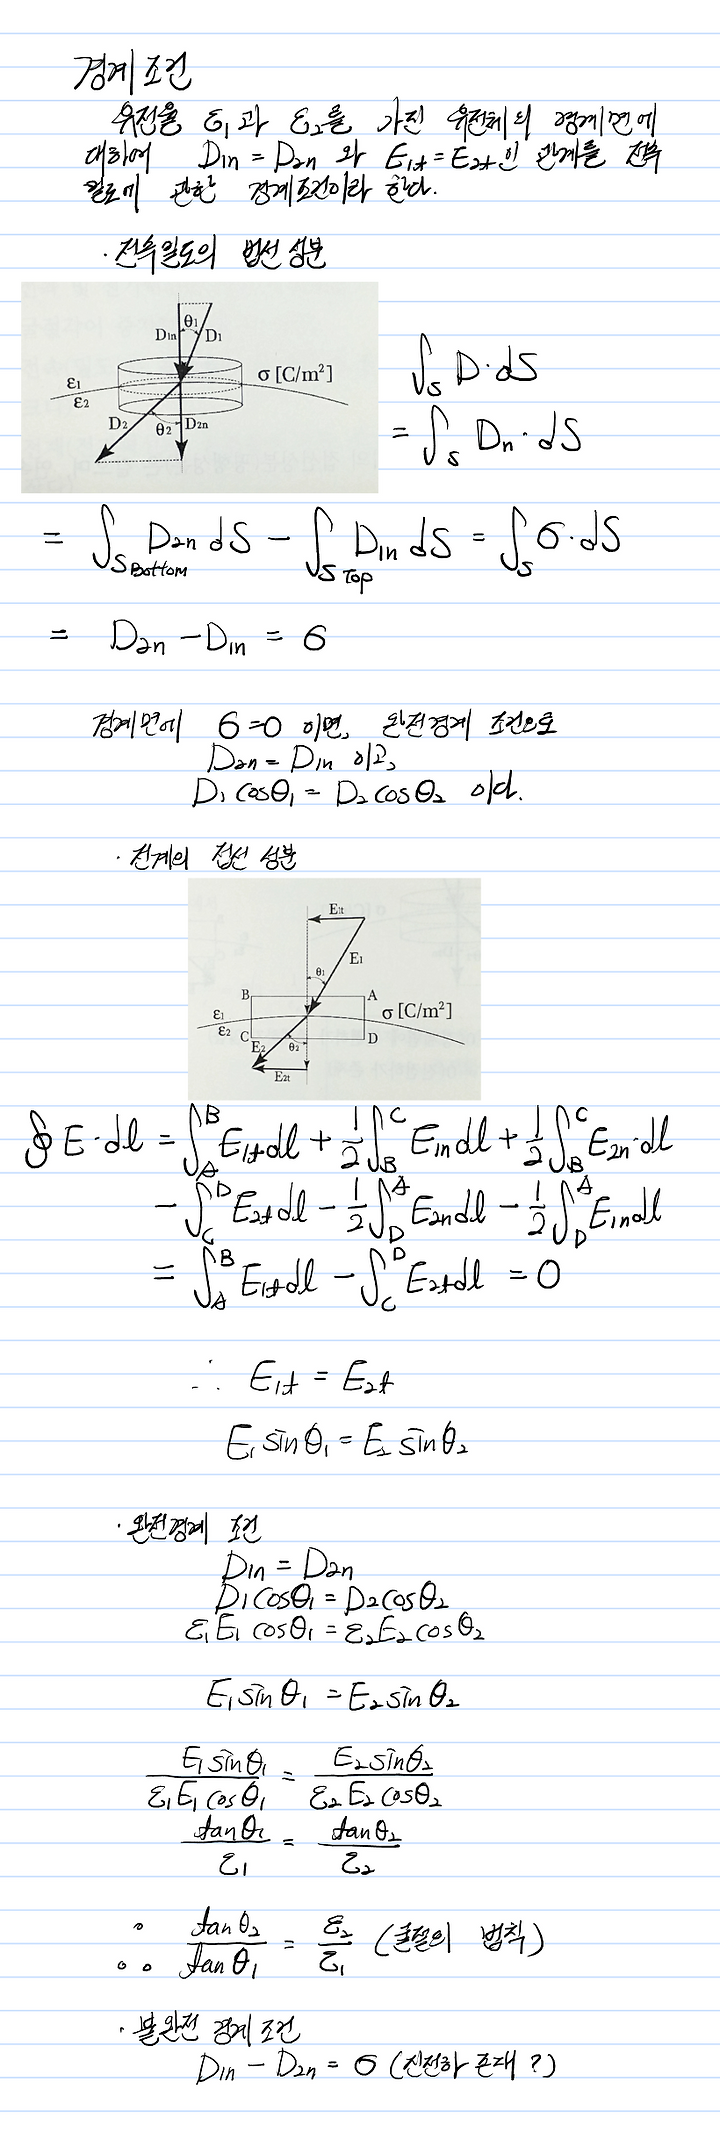 경계조건
유전율 ε₁과 ε₂를 가진 유전체의 경계면에
대하여 D₁n = D₂n 와 E₁t = E₂t인 관계를 전속
밀도에 관한 경계조건이라 한다.
· 전속밀도의 법선 성분
θ1
D1n D1
ε1
ε2
σ [C/m²]
D2 θ2 D2n
∫s D·dS
= ∫s Dn·dS
= ∫S Bottom D₂n dS - ∫S Top D₁n dS = ∫s σ·dS
= D₂n - D₁n = σ
경계면에 σ=0 이면, 완전경계 조건으로
D₂n = D₁n 이고,
D₁ cosθ₁ = D₂ cosθ₂ 이다.
· 전계의 접선 성분
E1t
E1
θ1
B A
ε1
ε2
σ [C/m²]
C D
E2 θ2
E2t
∮ E·dl = ∫_A^B E₁t dl + 1/2 ∫_B^C E₁n dl + 1/2 ∫_B^C E₂n·dl
- ∫_C^D E₂t dl - 1/2 ∫_D^A E₂n dl - 1/2 ∫_D^A E₁n dl
= ∫_A^B E₁t dl - ∫_C^D E₂t dl = 0
∴ E₁t = E₂t
E₁ sinθ₁ = E₂ sinθ₂
· 완전경계 조건
D₁n = D₂n
D₁cosθ₁ = D₂cosθ₂
ε₁E₁ cosθ₁ = ε₂E₂ cosθ₂
E₁sinθ₁ = E₂sinθ₂
E₁ sinθ₁ / ε₁E₁ cosθ₁ = E₂ sinθ₂ / ε₂E₂ cosθ₂
tanθ₁ / ε₁ = tanθ₂ / ε₂
∴ tanθ₂ / tanθ₁ = ε₂ / ε₁ (굴절의 법칙)
· 불완전 경계조건
D₁n - D₂n = σ (진전하 존재?)